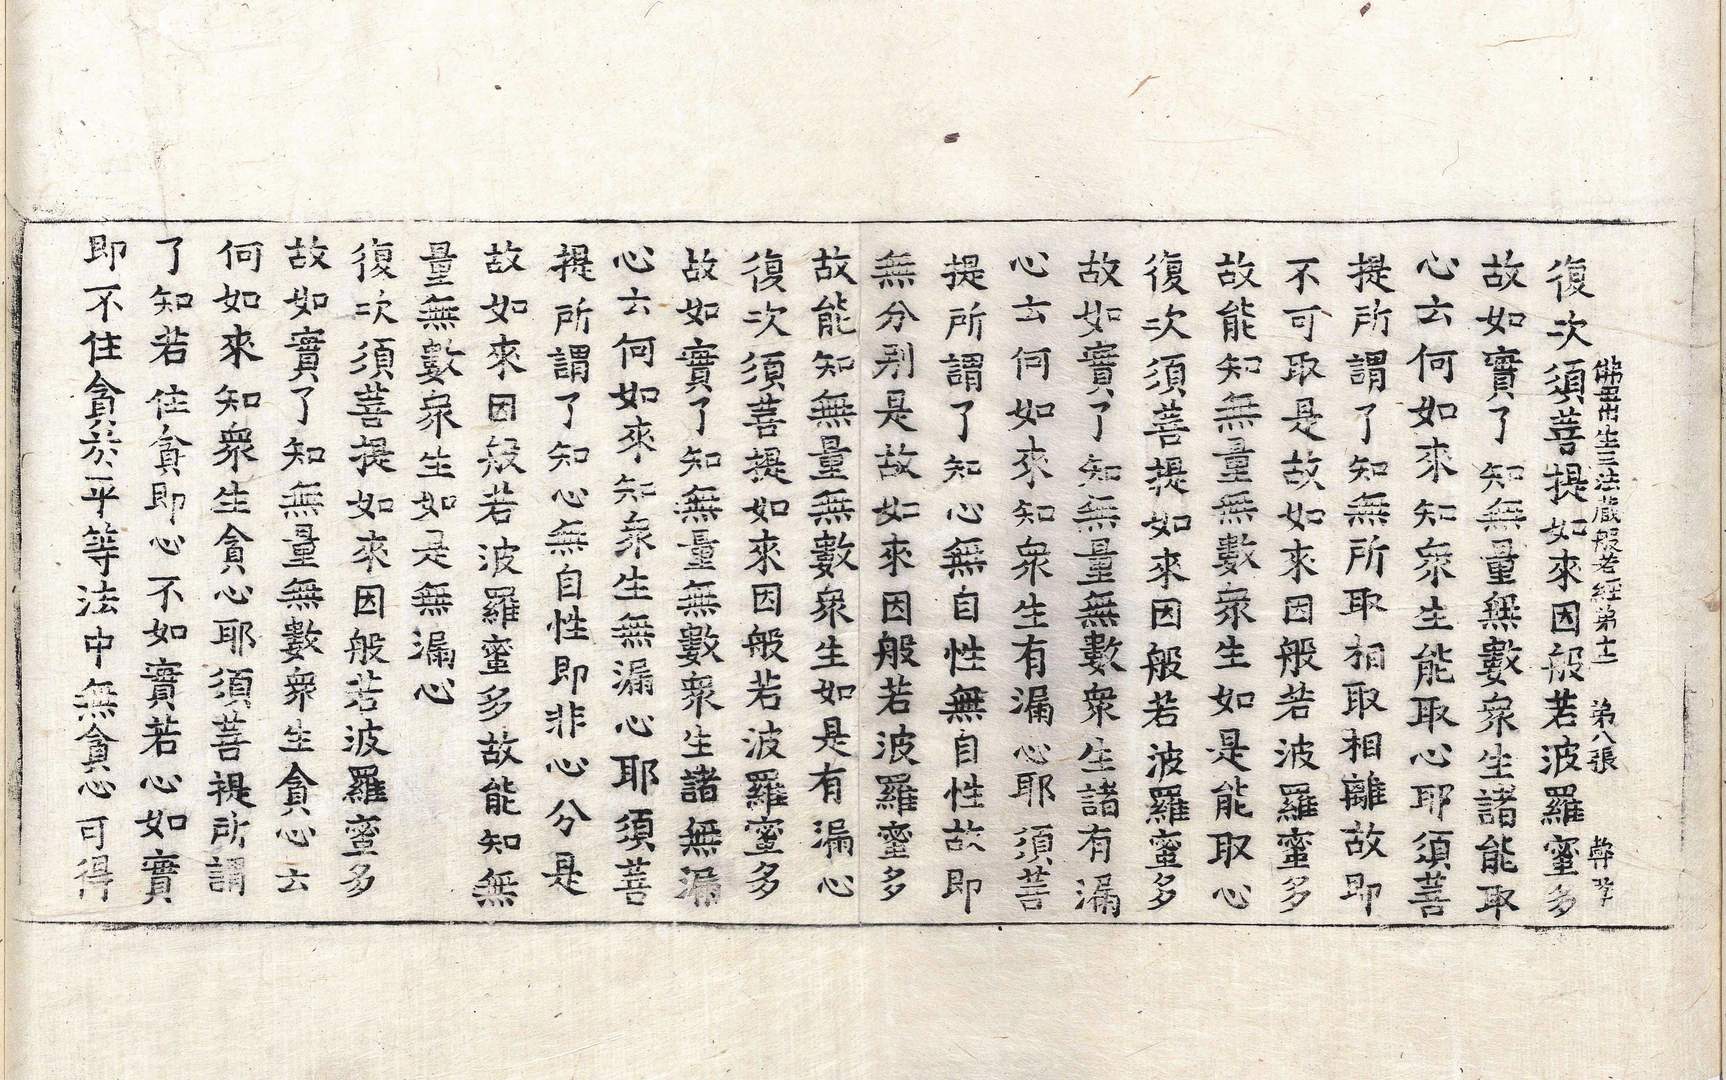 佛母出生三法藏般若經第十二 第八張
復次須菩提如來因般若波羅蜜多
故如實了知無量無數衆生諸能取
心云何如來知衆生能取心耶須菩
提所謂了知無所取相取相離故即
不可取是故如來因般若波羅蜜多
故能知無量無數衆生如是能取心
復次須菩提如來因般若波羅蜜多
故如實了知無量無數衆生諸有漏
心云何如來知衆生有漏心耶須菩
提所謂了知心無自性無自性故即
無分別是故如來因般若波羅蜜多
故能知無量無數衆生如是有漏心
復次須菩提如來因般若波羅蜜多
故如實了知無量無數衆生諸無漏
心云何如來知衆生無漏心耶須菩
提所謂了知心無自性即非心分是
故如來因般若波羅蜜多故能知無
量無數衆生如是無漏心
復次須菩提如來因般若波羅蜜多
故如實了知無量無數衆生貪心云
何如來知衆生貪心耶須菩提所謂
了知若住貪即心不如實若心如實
即不住貪於平等法中無貪心可得